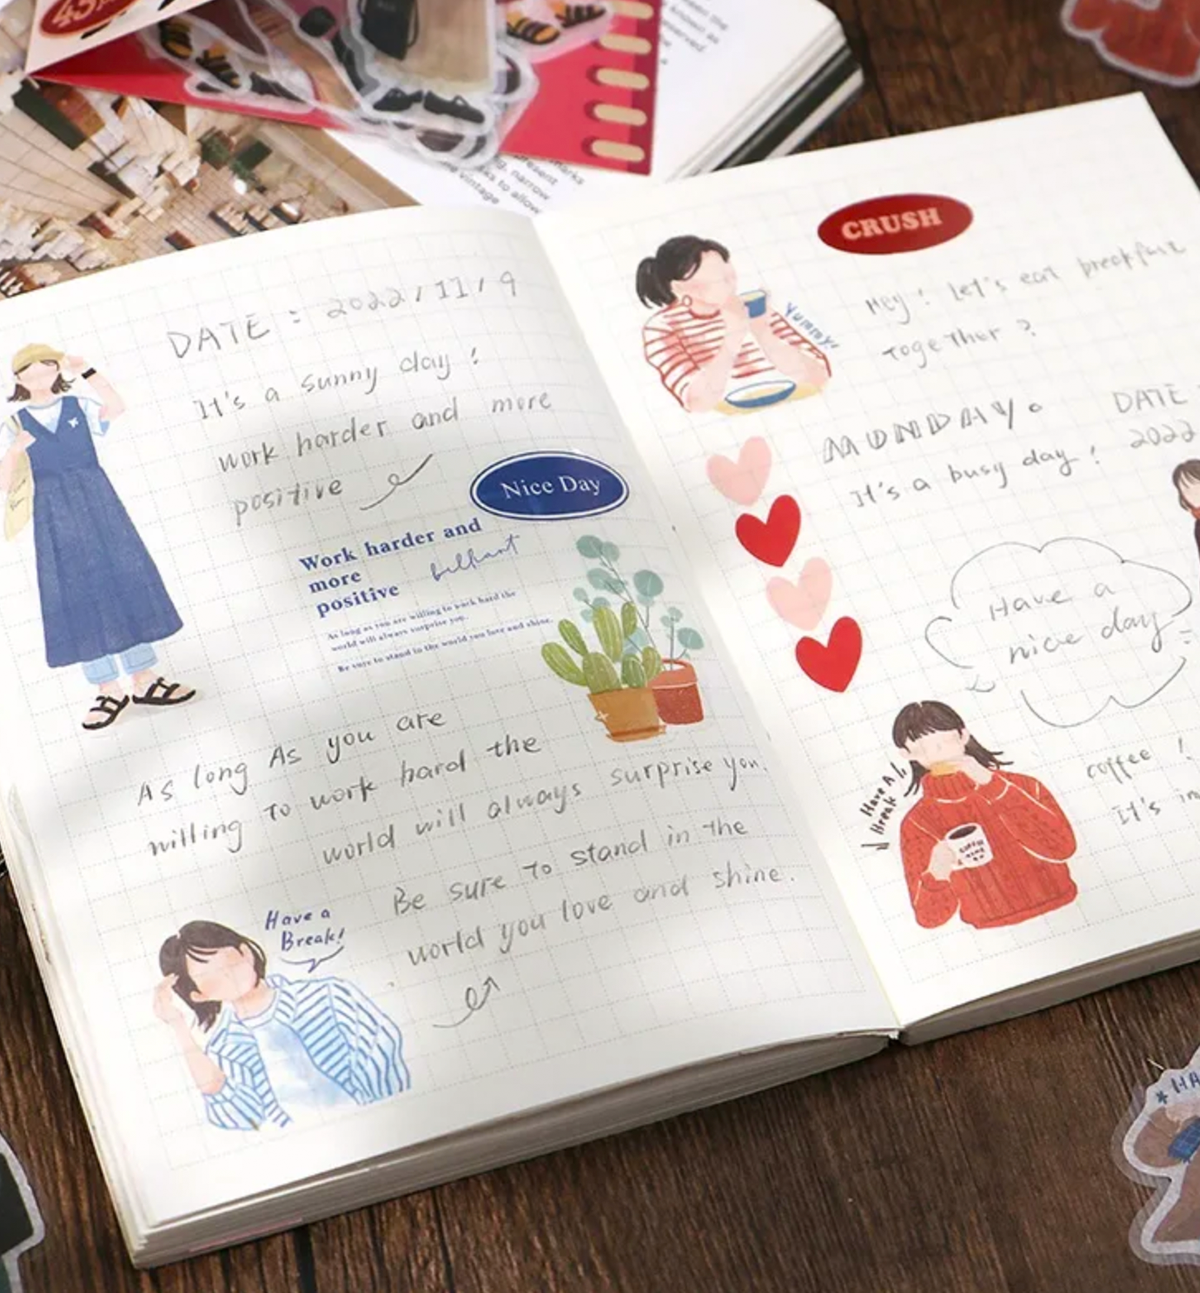 DATE : 2022/11/9
It's a sunny day !
work harder and more
positive
Nice Day
Work harder and
more
positive
As long as you are willing to work hard the
world will always surprise you.
Be sure to stand in the world you love and shine.
As long As you are
willing To work hard the
world will always surprise you.
Be sure To stand in the
world you love and shine.
Have a
Break!
CRUSH
Yummy!
Hey ! Let's eat breakfast
Together ?
MUNDAY.
DATE
2022
It's a busy day !
Have a
nice day
Have A
Break
coffee !
It's
45
present
narrow
to allow
vintage
reserved